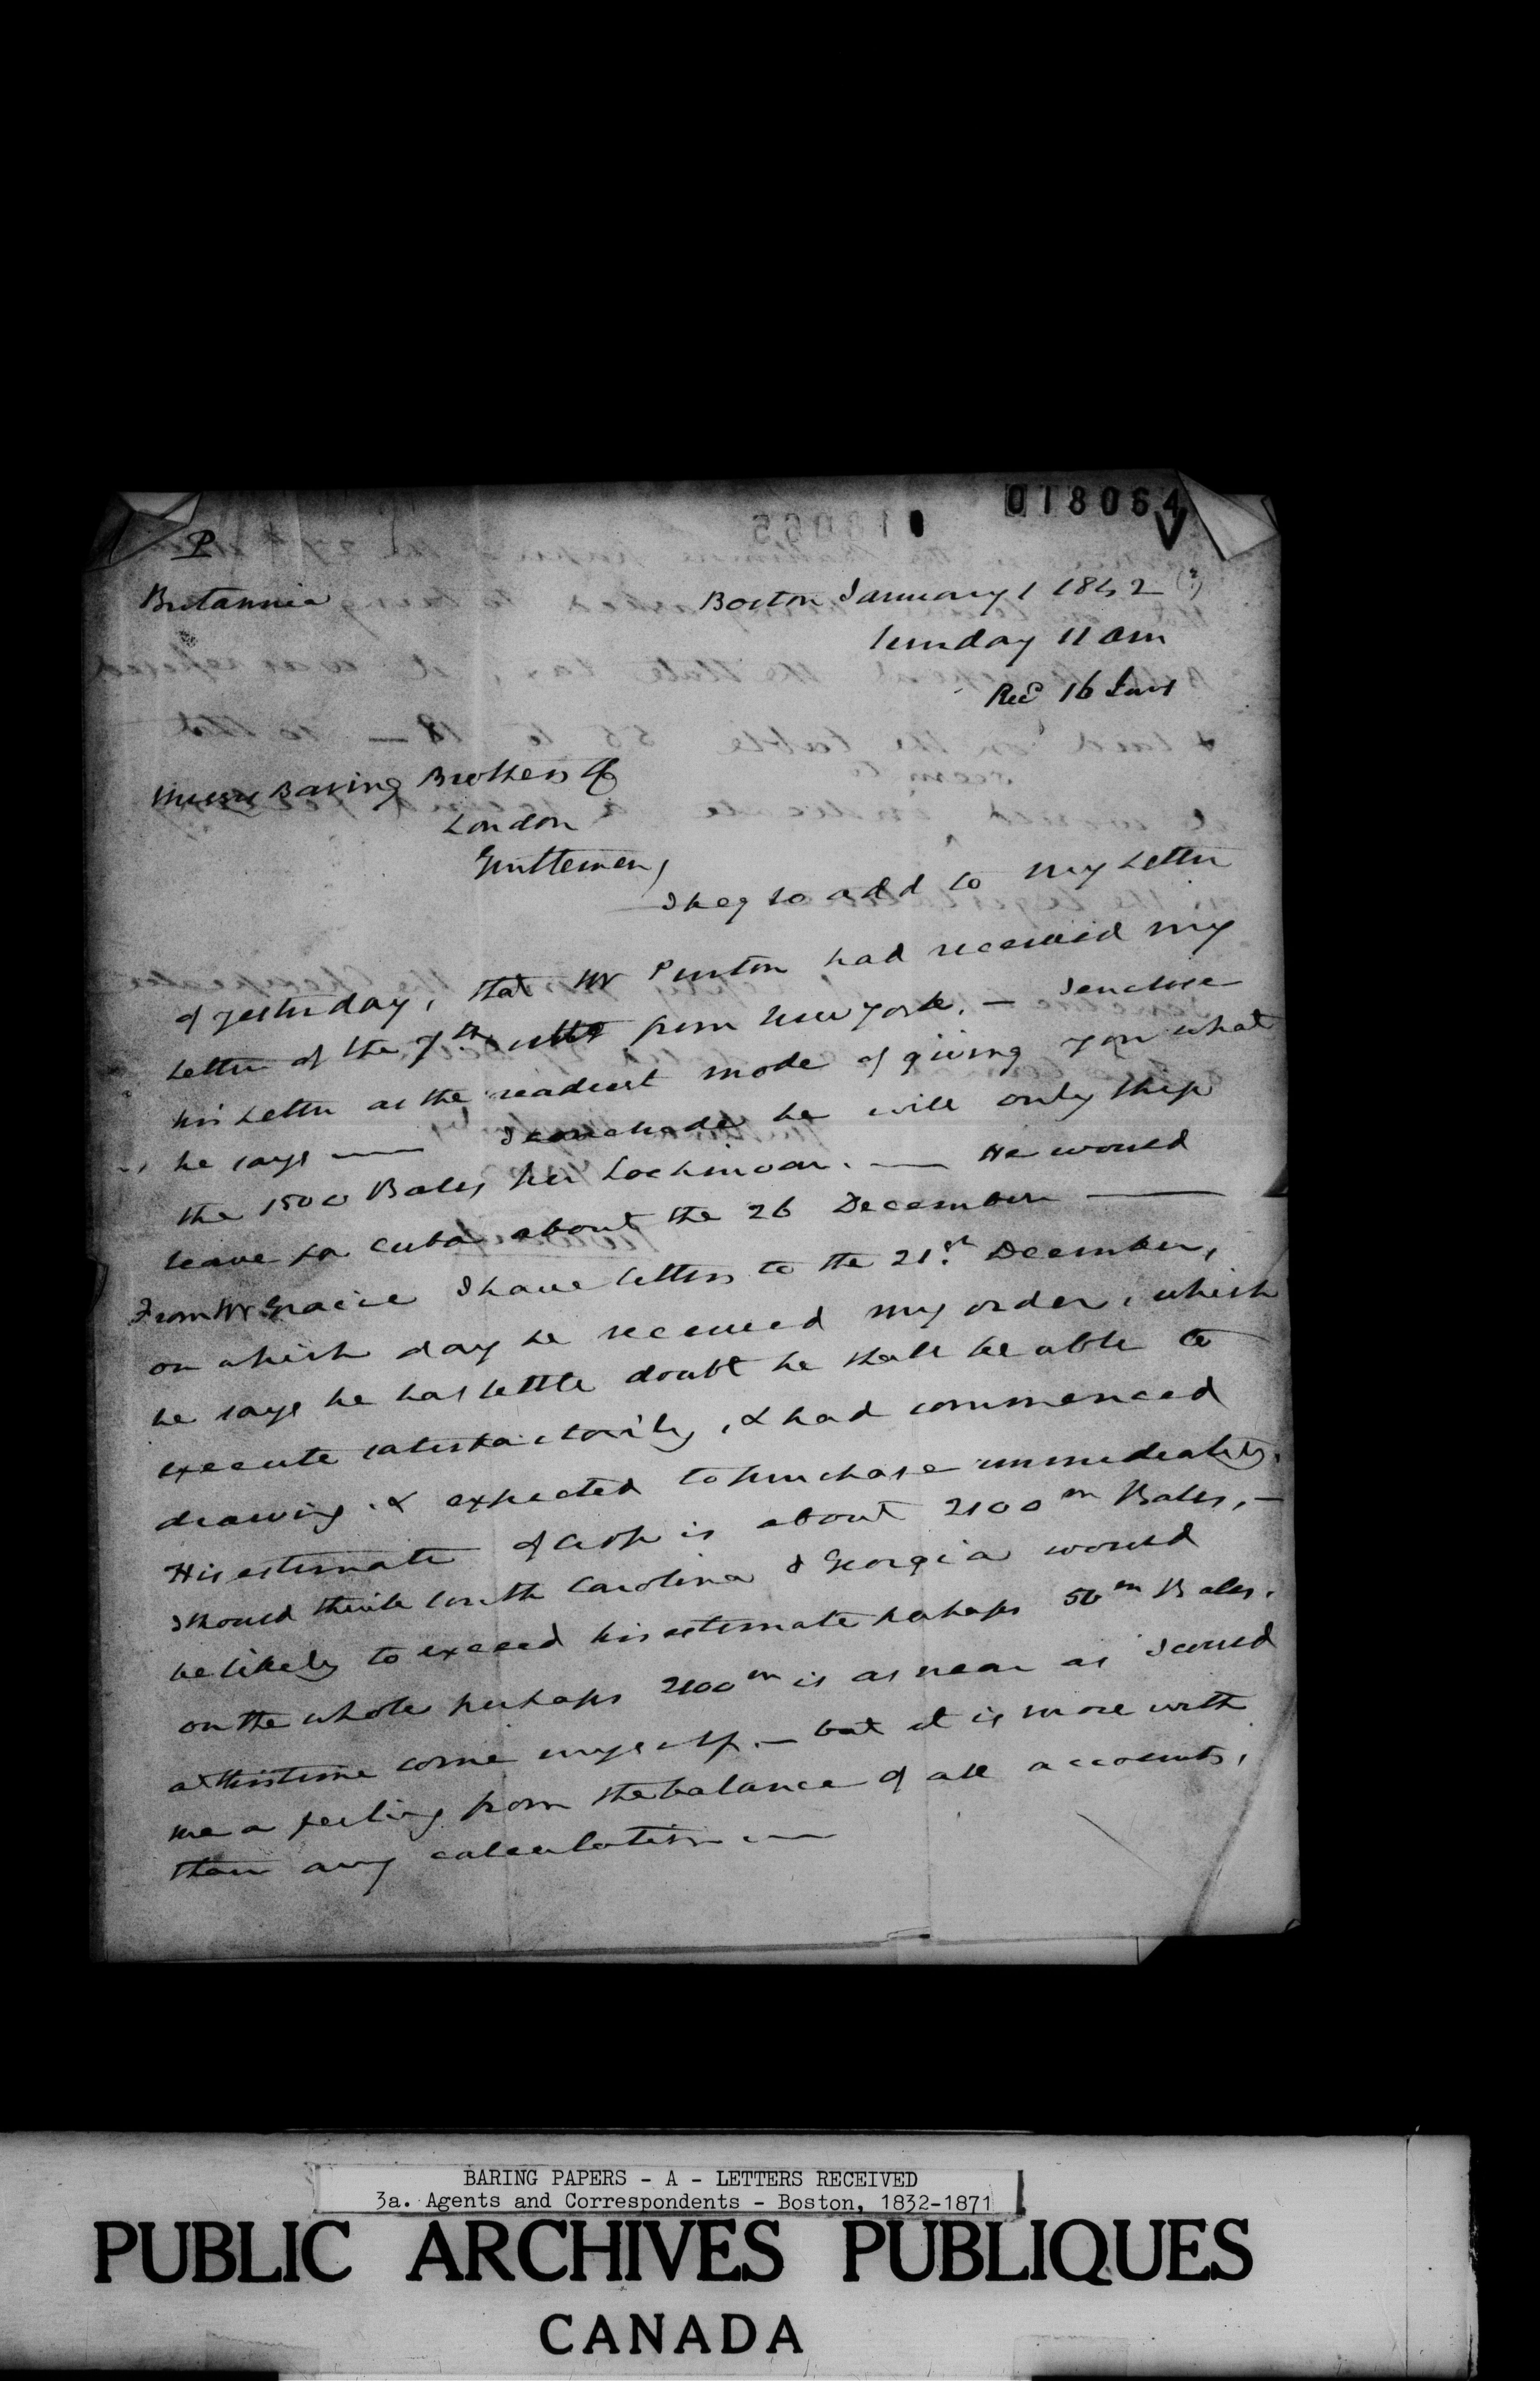 018064
P
Britannia
Boston January 1 1842 (3)
Sunday 11 am
Recd 16 Jany
Messrs Baring Brothers & Co
London
Gentlemen,
I beg to add to my Letter
of yesterday, that Mr Purton had received my
Letter of the 7th ulto from New York. — I enclose
his Letter as the readiest mode of giving you what
he says — I conclude he will only ship
the 1500 Bales per Lochinvar. — He would
leave for Cuba about the 26 December —
From Mr Gracie I have letters to the 21st December,
on which day he received my order, which
he says he has little doubt he shall be able to
execute satisfactorily, & had commenced
drawing & expected to purchase immediately.
His estimate of Crop is about 2100 m Bales, —
I should think South Carolina & Georgia would
be likely to exceed his estimate perhaps 50 m Bales.
on the whole perhaps 2100 m is as near as I could
at this time come myself. — but it is more with
me a feeling from the balance of all accounts,
than any calculation —
BARING PAPERS - A - LETTERS RECEIVED
3a. Agents and Correspondents - Boston, 1832-1871
PUBLIC ARCHIVES PUBLIQUES
CANADA